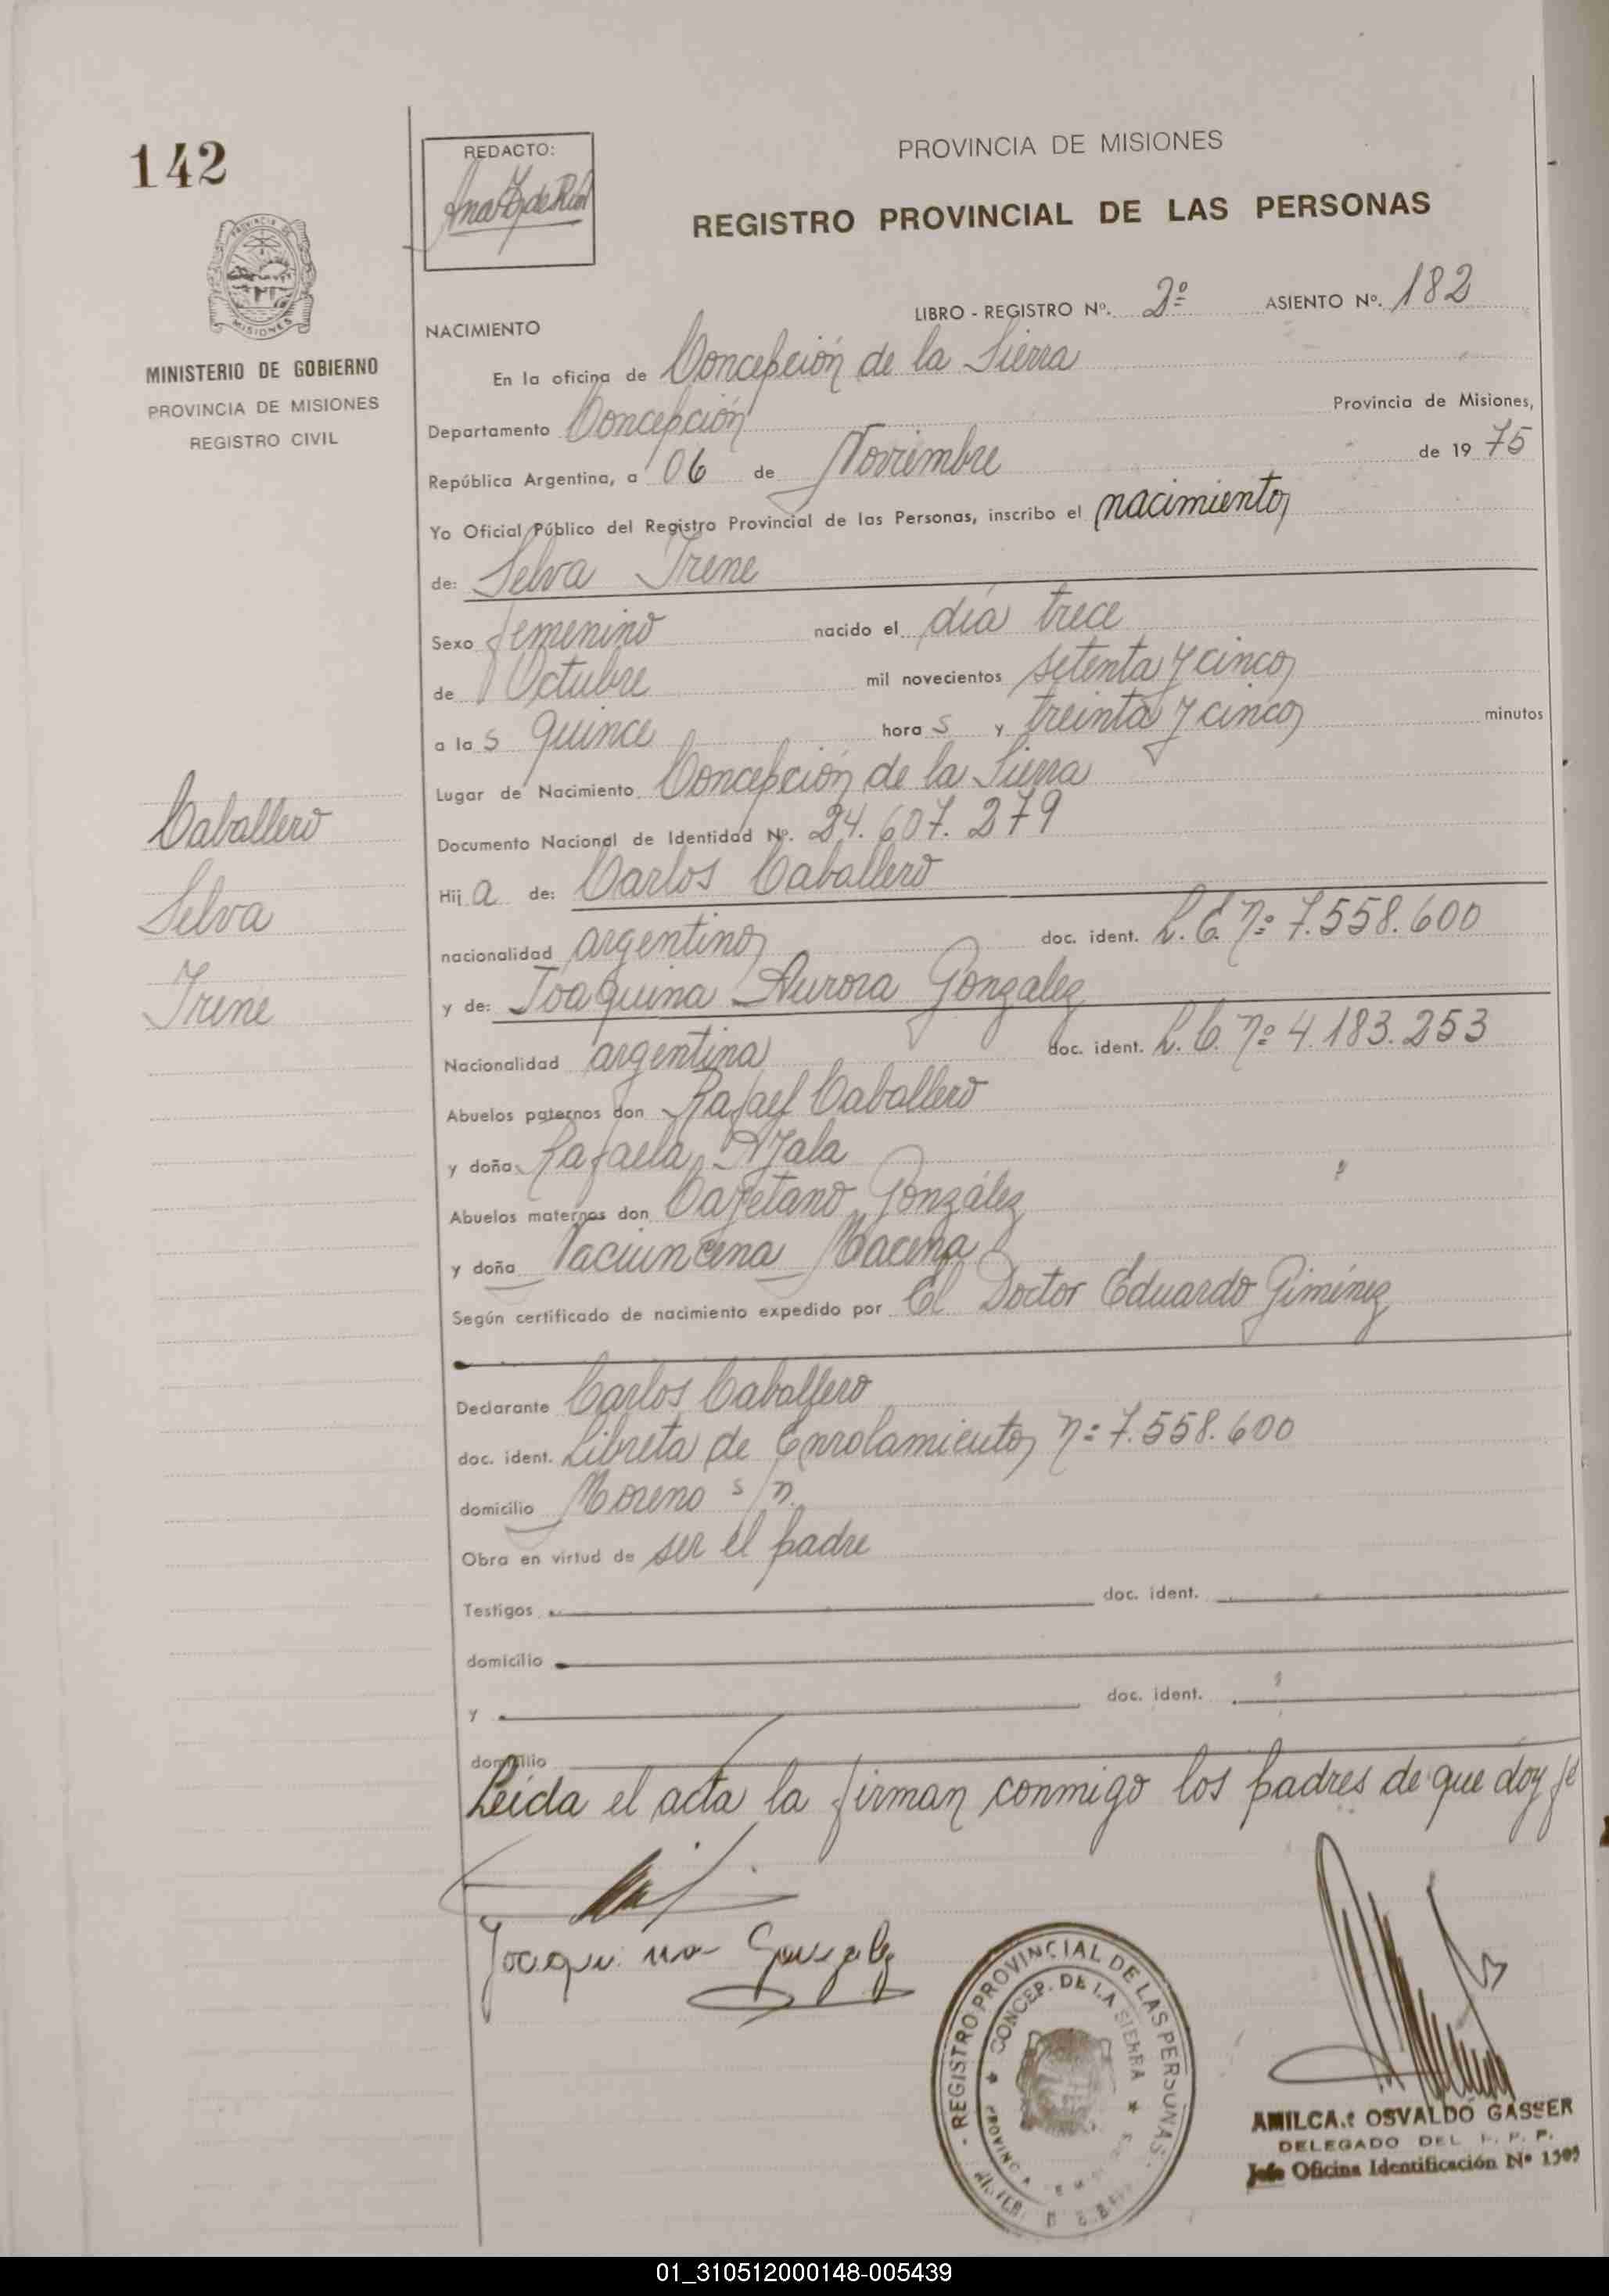 142
REDACTO:
PROVINCIA DE MISIONES
REGISTRO PROVINCIAL DE LAS PERSONAS
LIBRO - REGISTRO Nº. 2º ASIENTO Nº. 182
MISIONES
MINISTERIO DE GOBIERNO
PROVINCIA DE MISIONES
REGISTRO CIVIL
NACIMIENTO
En la oficina de Concepción de la Sierra
Departamento Concepción Provincia de Misiones,
República Argentina, a 06 de Noviembre de 19 75
Yo Oficial Público del Registro Provincial de las Personas, inscribo el nacimiento
de: Selva Irene
Sexo femenino nacido el día trece
de Octubre mil novecientos setenta y cinco
a la s quince hora s y treinta y cinco minutos
Lugar de Nacimiento Concepción de la Sierra
Documento Nacional de Identidad Nº. 24.607.279
Caballero
Selva
Irene
Hij a de: Carlos Caballero
nacionalidad argentino doc. ident. L.E. nº 7.558.600
y de: Joaquina Aurora Gonzalez
Nacionalidad argentina doc. ident. L.C. nº 4.183.253
Abuelos paternos don Rafael Caballero
y doña Rafaela Ayala
Abuelos maternos don Cayetano González
y doña
Según certificado de nacimiento expedido por El Doctor Eduardo Giménez
Declarante Carlos Caballero
doc. ident. Libreta de Enrolamiento nº 7.558.600
domicilio Moreno s/n.
Obra en virtud de ser el padre
Testigos doc. ident.
domicilio
y doc. ident.
domicilio
Leída el acta la firman conmigo los padres de que doy fe
Joaquina Gonzalez
REGISTRO PROVINCIAL DE LAS PERSONAS
CONCEP. DE LA SIERRA
AMILCAR OSVALDO GASSER
DELEGADO DEL
Jefe Oficina Identificación Nº
01_310512000148-005439